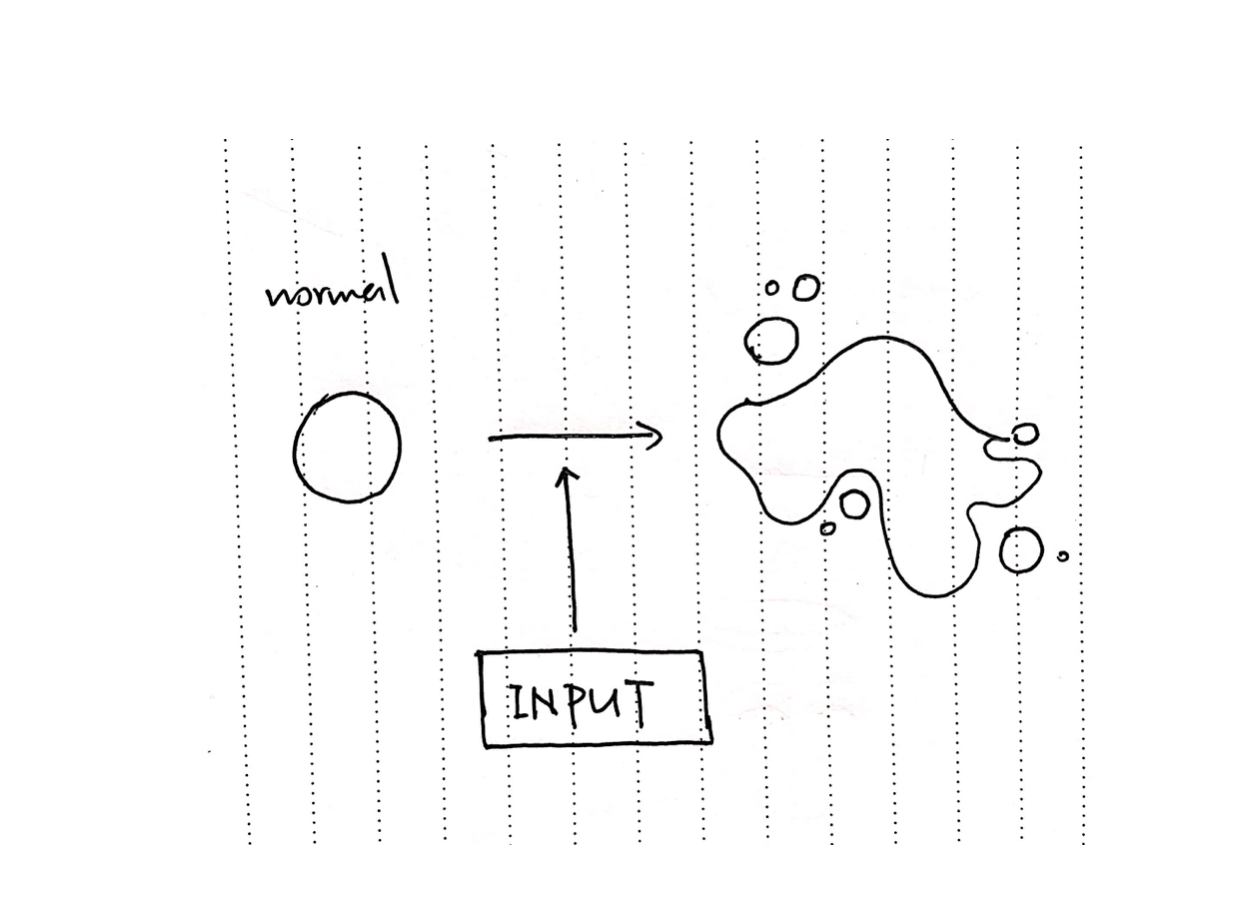 normal
INPUT